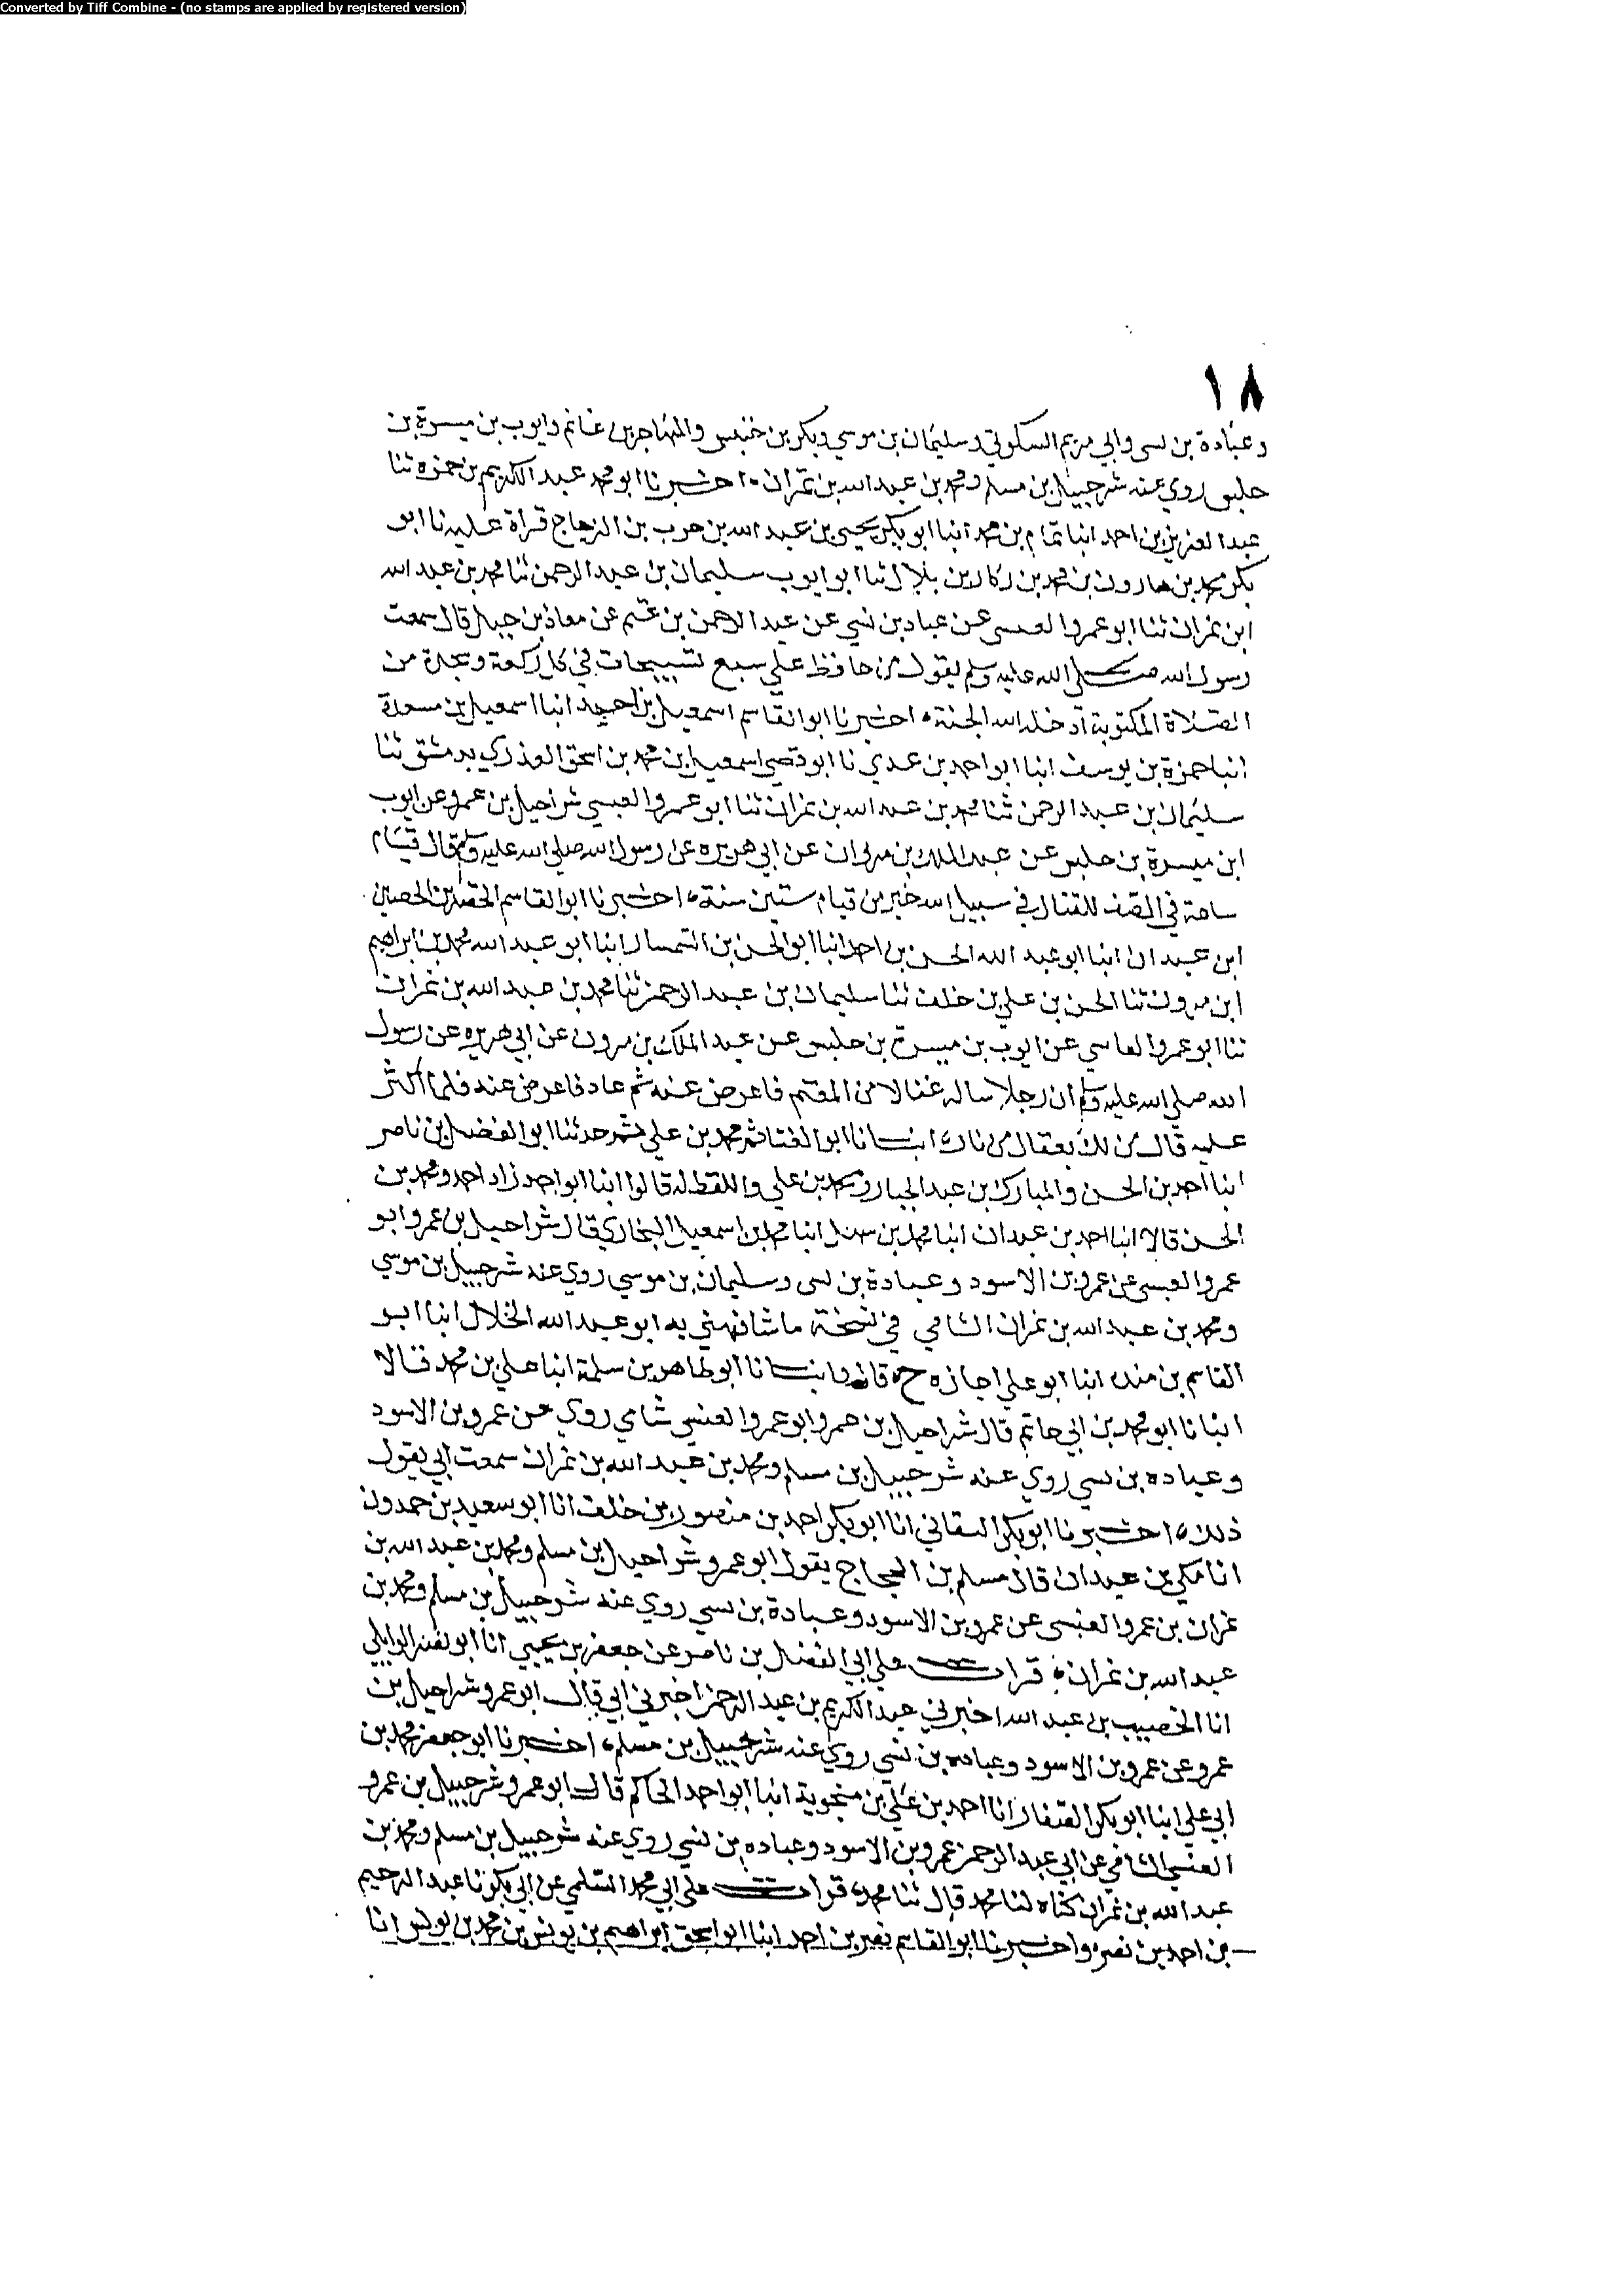 Converted by Tiff Combine - (no stamps are applied by registered version)
١٨
وعبادة بن نسي وابي مريم السكوني وسليمان بن موسي وبكر بن خنيس والمهاجر بن غانم وايوب بن ميسرة بن
حلبس روي عنه شرحبيل بن مسلم ومحمد بن عبد الله بن نمران اخبرنا ابو محمد عبد الكريم بن حمزه ثنا
عبد العزيز بن احمد انبا تمام بن محمد انبا ابو بكر يحيى بن عبد الله بن حرب بن الزجاج قراة عليه نا ابو
بكر محمد بن هارون بن محمد بن بكار بن بلال ثنا ابو ايوب سليمان بن عبد الرحمن ثنا محمد بن عبد الله
ابن نمران ثنا ابو عمرو العنسي عن عباد بن نسي عن عبد الرحمن بن غنم عن معاذ بن جبل قال سمعت
رسول الله صلي الله عليه وسلم يقول من حافظ علي سبع تسبيحات في كل ركعة وسجدة من
الصلاة المكتوبة ادخله الله الجنة اخبرنا ابو القاسم اسمعيل بن احمد انبا اسمعيل بن مسعدة
انبا حمزة بن يوسف انبا ابو احمد بن عدي نا ابو قصي اسمعيل بن محمد بن اسحق العذري بدمشق ثنا
سليمان بن عبد الرحمن ثنا محمد بن عبد الله بن نمران ثنا ابو عمرو العبسي شراحيل بن عمرو عن ايوب
ابن ميسرة بن حلبس عن عبد الملك بن مروان عن ابي هريره عن رسول الله صلي الله عليه وسلم قال قيام
ساعة في الصف للقتال في سبيل الله خير من قيام ستين سنة اخبرنا ابو القاسم الخضر بن الحصين
ابن عبدان انبا ابو عبد الله الحسن بن احمد انبا ابو الحسن بن السمسار انبا ابو عبد الله محمد بن ابراهيم
ابن مروان ثنا الحسن بن علي بن خلف ثنا سليمان بن عبد الرحمن ثنا محمد بن عبد الله بن نمران
ثنا ابو عمرو العاسي عن ايوب بن ميسرة بن حلبس عن عبد الملك بن مرون عن ابي هريره عن رسول
الله صلي الله عليه وسلم ان رجلا ساله عقالا من المغنم فاعرض عنه ثم عاد فاعرض عنه فلما اكثر
عليه قال من لك بعقال من نار انبانا ابو الغنائم محمد بن علي ثم حدثنا ابو الفضل بن ناصر
انبا احمد بن الحسن والمبارك بن عبد الجبار ومحمد بن علي واللفظ له قالوا انبا ابو احمد زاد احمد ومحمد بن
الحسن قالا انبا احمد بن عبدان انبا محمد بن سهل انبا محمد بن اسمعيل البخاري قال شراحيل بن عمرو ابو
عمرو العبسي عن عمرو بن الاسود وعبادة بن نسى وسليمان بن موسي روي عنه شرحبيل بن موسي
ومحمد بن عبد الله بن نمران الشامي في نسخة ما شافهني به ابو عبد الله الخلال انبا ابو
القاسم بن منده انبا ابو علي اجازه ح قال وانبانا ابو طاهر بن سلمة انبا علي بن محمد قالا
انبانا ابو محمد بن ابي حاتم قال شراحيل بن عمرو ابو عمرو العنسي شامي روي عن عمرو بن الاسود
وعباده بن نسي روي عنه شرحبيل بن مسلم ومحمد بن عبد الله بن نمران سمعت ابي يقول
ذلك اخبرنا ابو بكر الشقاني انا ابو بكر احمد بن منصور بن خلف انا ابو سعيد بن حمدون
انا مكي بن عبدان قال مسلم بن الحجاج يقول ابو عمرو شراحيل بن مسلم ومحمد بن عبد الله بن
نمران بن عمرو العنسي عن عمرو بن الاسود وعبادة بن نسي روي عنه شرحبيل بن مسلم ومحمد بن
عبد الله بن نمران قرات علي ابي الفضل بن ناصر عن جعفر بن يحيي انا ابو نصر الوايلي
انا الخصيب بن عبد الله اخبرني عبد الكريم بن عبد الرحمن اخبرني ابي قال ابو عمرو شراحيل بن
عمرو عن عمرو بن الاسود وعباده بن نسي روي عنه شرحبيل بن مسلم اخبرنا ابو جعفر محمد بن
ابي علي انبا ابو بكر الصفار انا احمد بن علي بن منجوية انبا ابو احمد الحاكم قال ابو عمرو شرحبيل بن عمرو
العنسي الشامي عن ابي عبد الرحمن عمرو بن الاسود وعباده بن نسي روي عنه شرحبيل بن مسلم ومحمد بن
عبد الله بن نمران كناه لنا محمد قال ثنا محمد قرات علي ابي محمد السلمي عن ابي بكر نا عبد الرحيم
بن احمد بن نصر واخبرنا ابو القاسم نصر بن احمد انبا ابو اسحق ابراهيم بن يونس بن محمد بن يونس انا